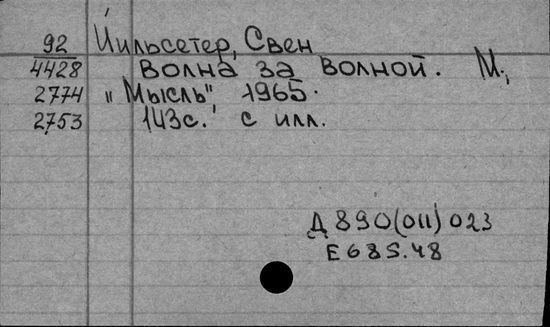 92 Йильсетер, Свен
4428 Волна за волной. М.,
2774 "Мысль", 1965.
2753 143с. с илл.
Д 890(011) 023
Е 685.48